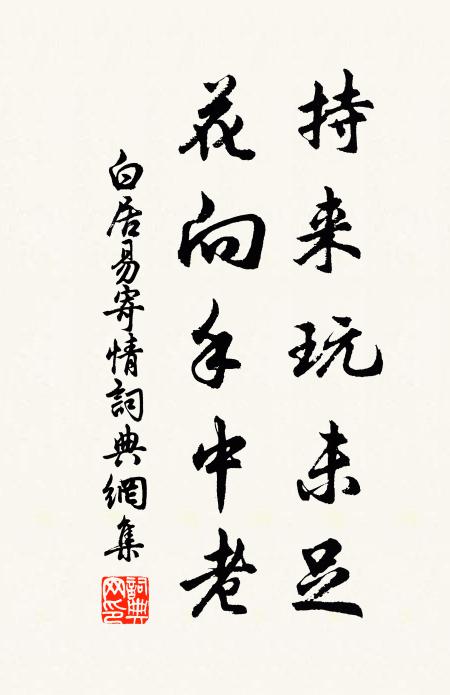 持来玩未足
花向手中老
白居易寄情詞典網集
詞典网印